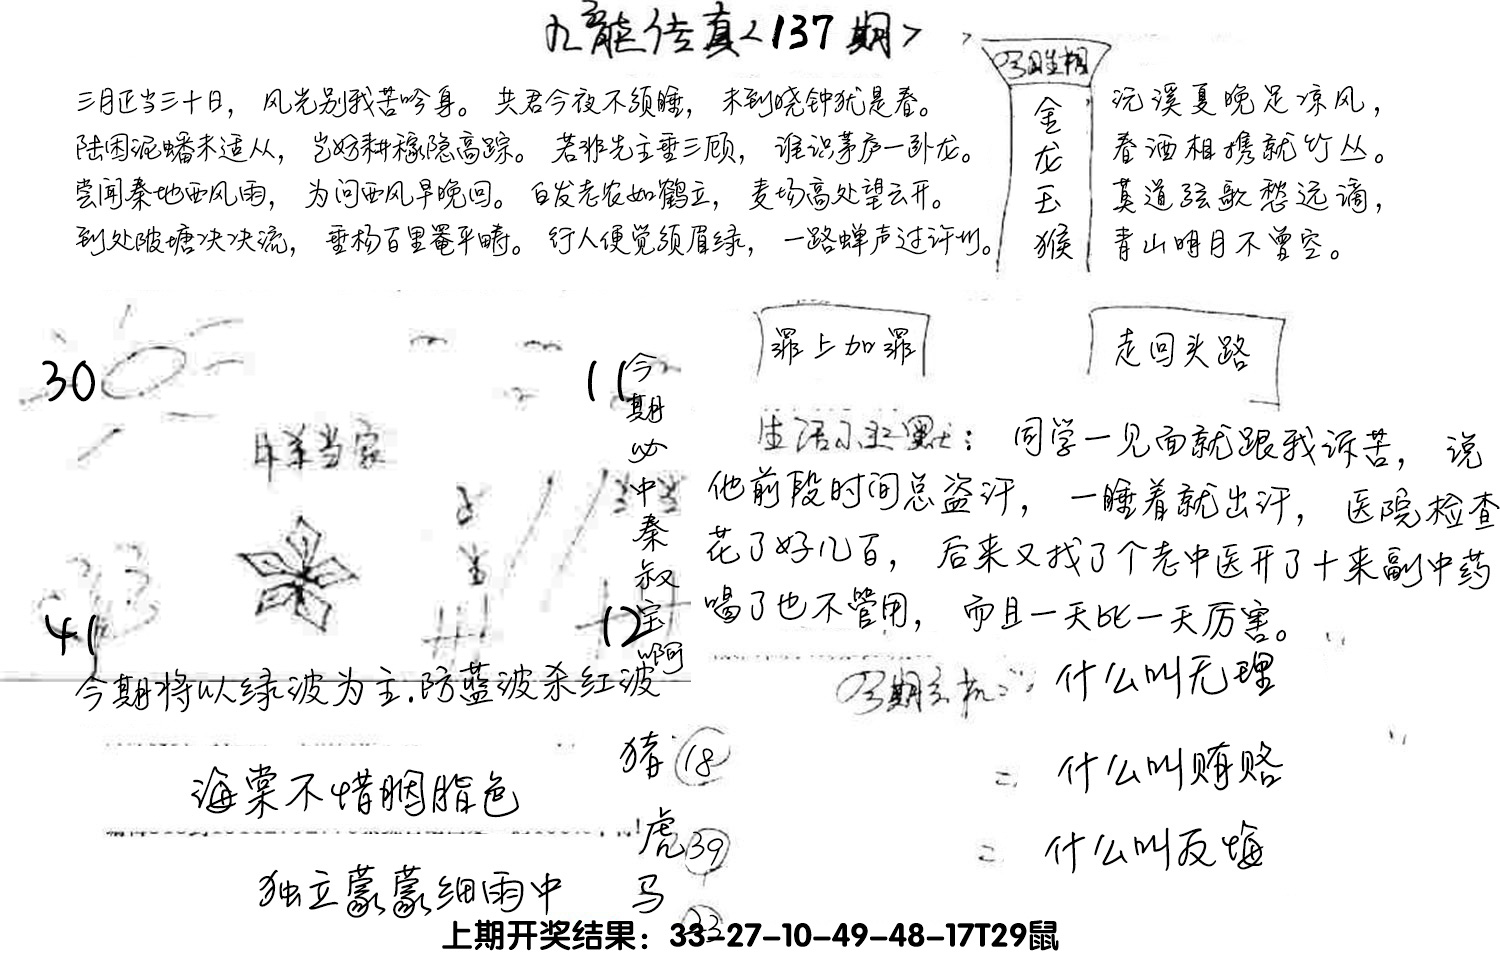 九龙传真<137期>
三月正当三十日，风光别我苦吟身。共君今夜不须睡，未到晓钟犹是春。
陆困泥蟠未适从，岂好耕稼隐高踪。若非先主垂三顾，谁识茅庐一卧龙。
尝闻秦地西风雨，为问西风早晚回。白发老农如鹤立，麦场高处望云开。
到处陂塘决决流，垂杨百里罨平畴。行人便觉须眉绿，一路蝉声过许州。
金
龙
玉
猴
沅溪夏晚足凉风，
春酒相携就竹丛。
莫道弦歌愁远谪，
青山明月不曾空。
30
11
41
12
今期必中秦叔宝啊
今期将以绿波为主.防蓝波杀红波
罪上加罪
走回头路
生活小幽默：同学一见面就跟我诉苦，说
他前段时间总盗汗，一睡着就出汗，医院检查
花了好几百，后来又找了个老中医开了十来副中药
喝了也不管用，而且一天比一天厉害。
什么叫无理
= 什么叫贿赂
= 什么叫反悔
海棠不惜胭脂色
独立蒙蒙细雨中
猪 18
虎 39
马
上期开奖结果：33-27-10-49-48-17T29鼠